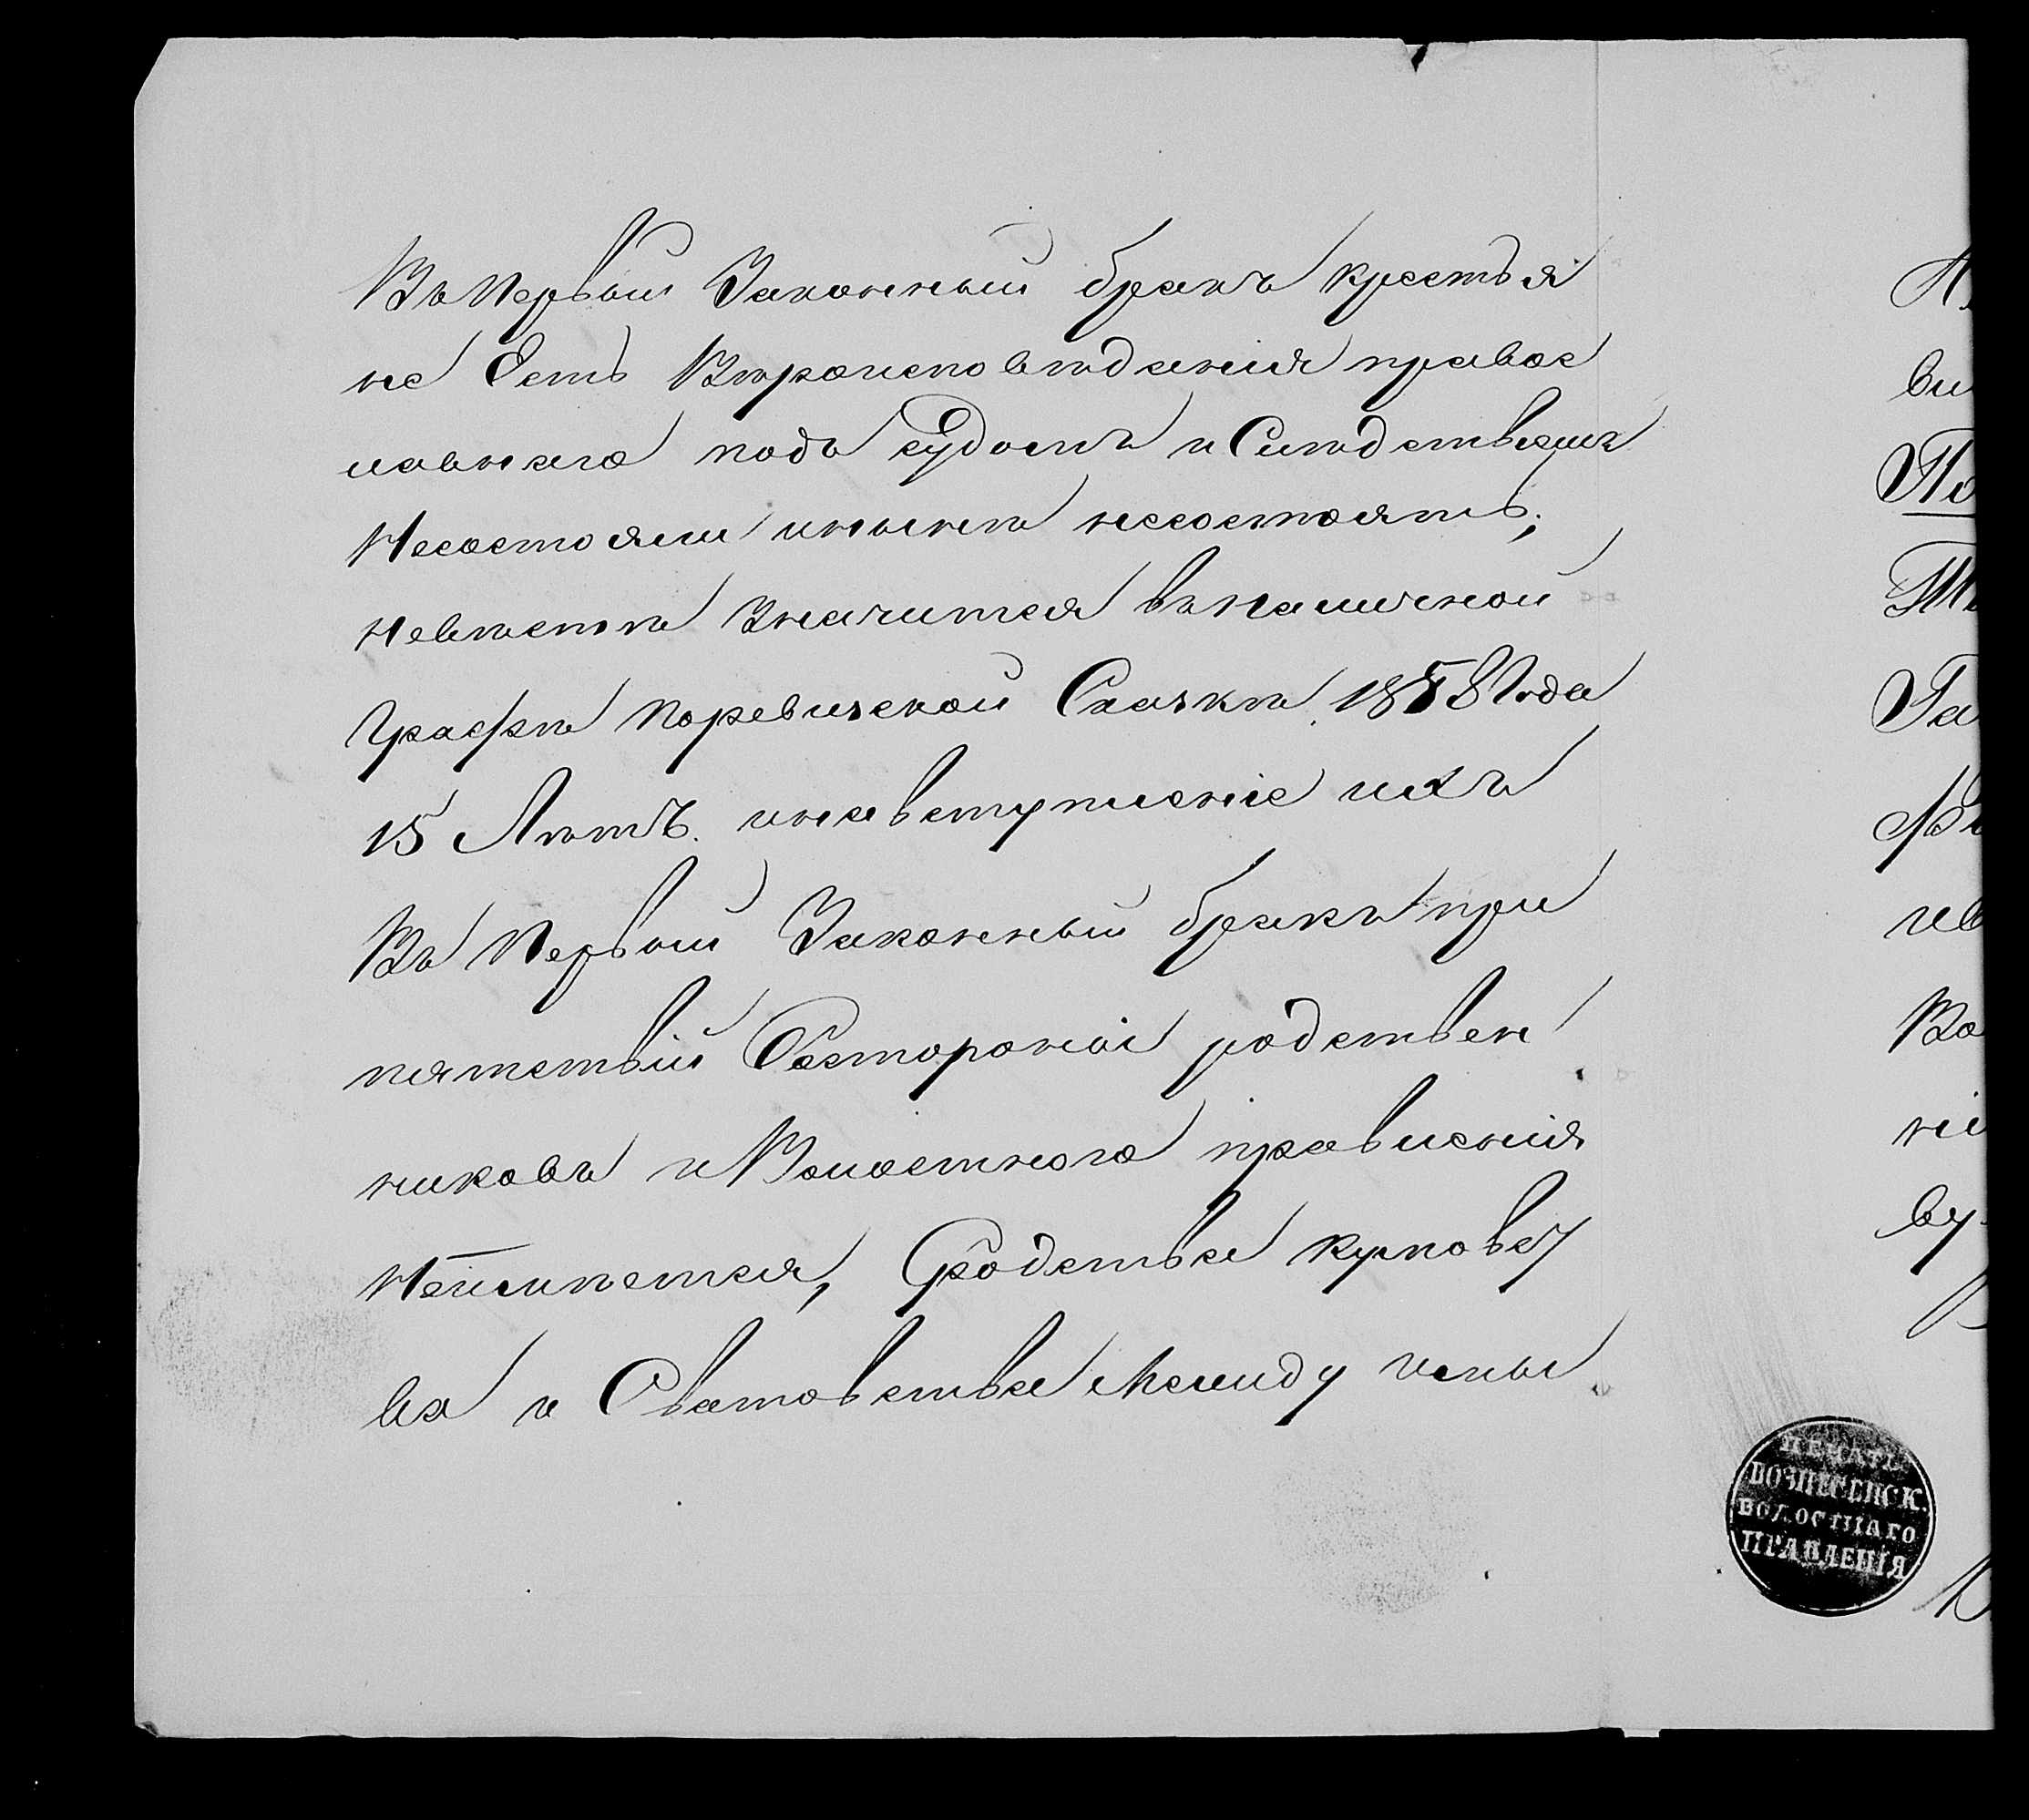 Въ Первый Законный бракъ крестья
не Есть Вѣроисповѣданія правос
лавнаго подъ судомъ и Слѣдствіемъ
Несостояли инынѣ несостоятъ;
невѣста Значится въ наличной
Графѣ поревизской Сказкѣ 1858 Года
15 Лѣтъ инавступленіе ихъ
Въ Первый Законный бракъ при
пятствій Состороны родствен
никовъ и Волостного правленія
Неимѣется, Сродства кумовс
ва и Сватовства Между ими
ПЕЧАТЬ
ВОЗНЕСЕНСК.
ВОЛОСТНАГО
ПРАВЛЕНІЯ